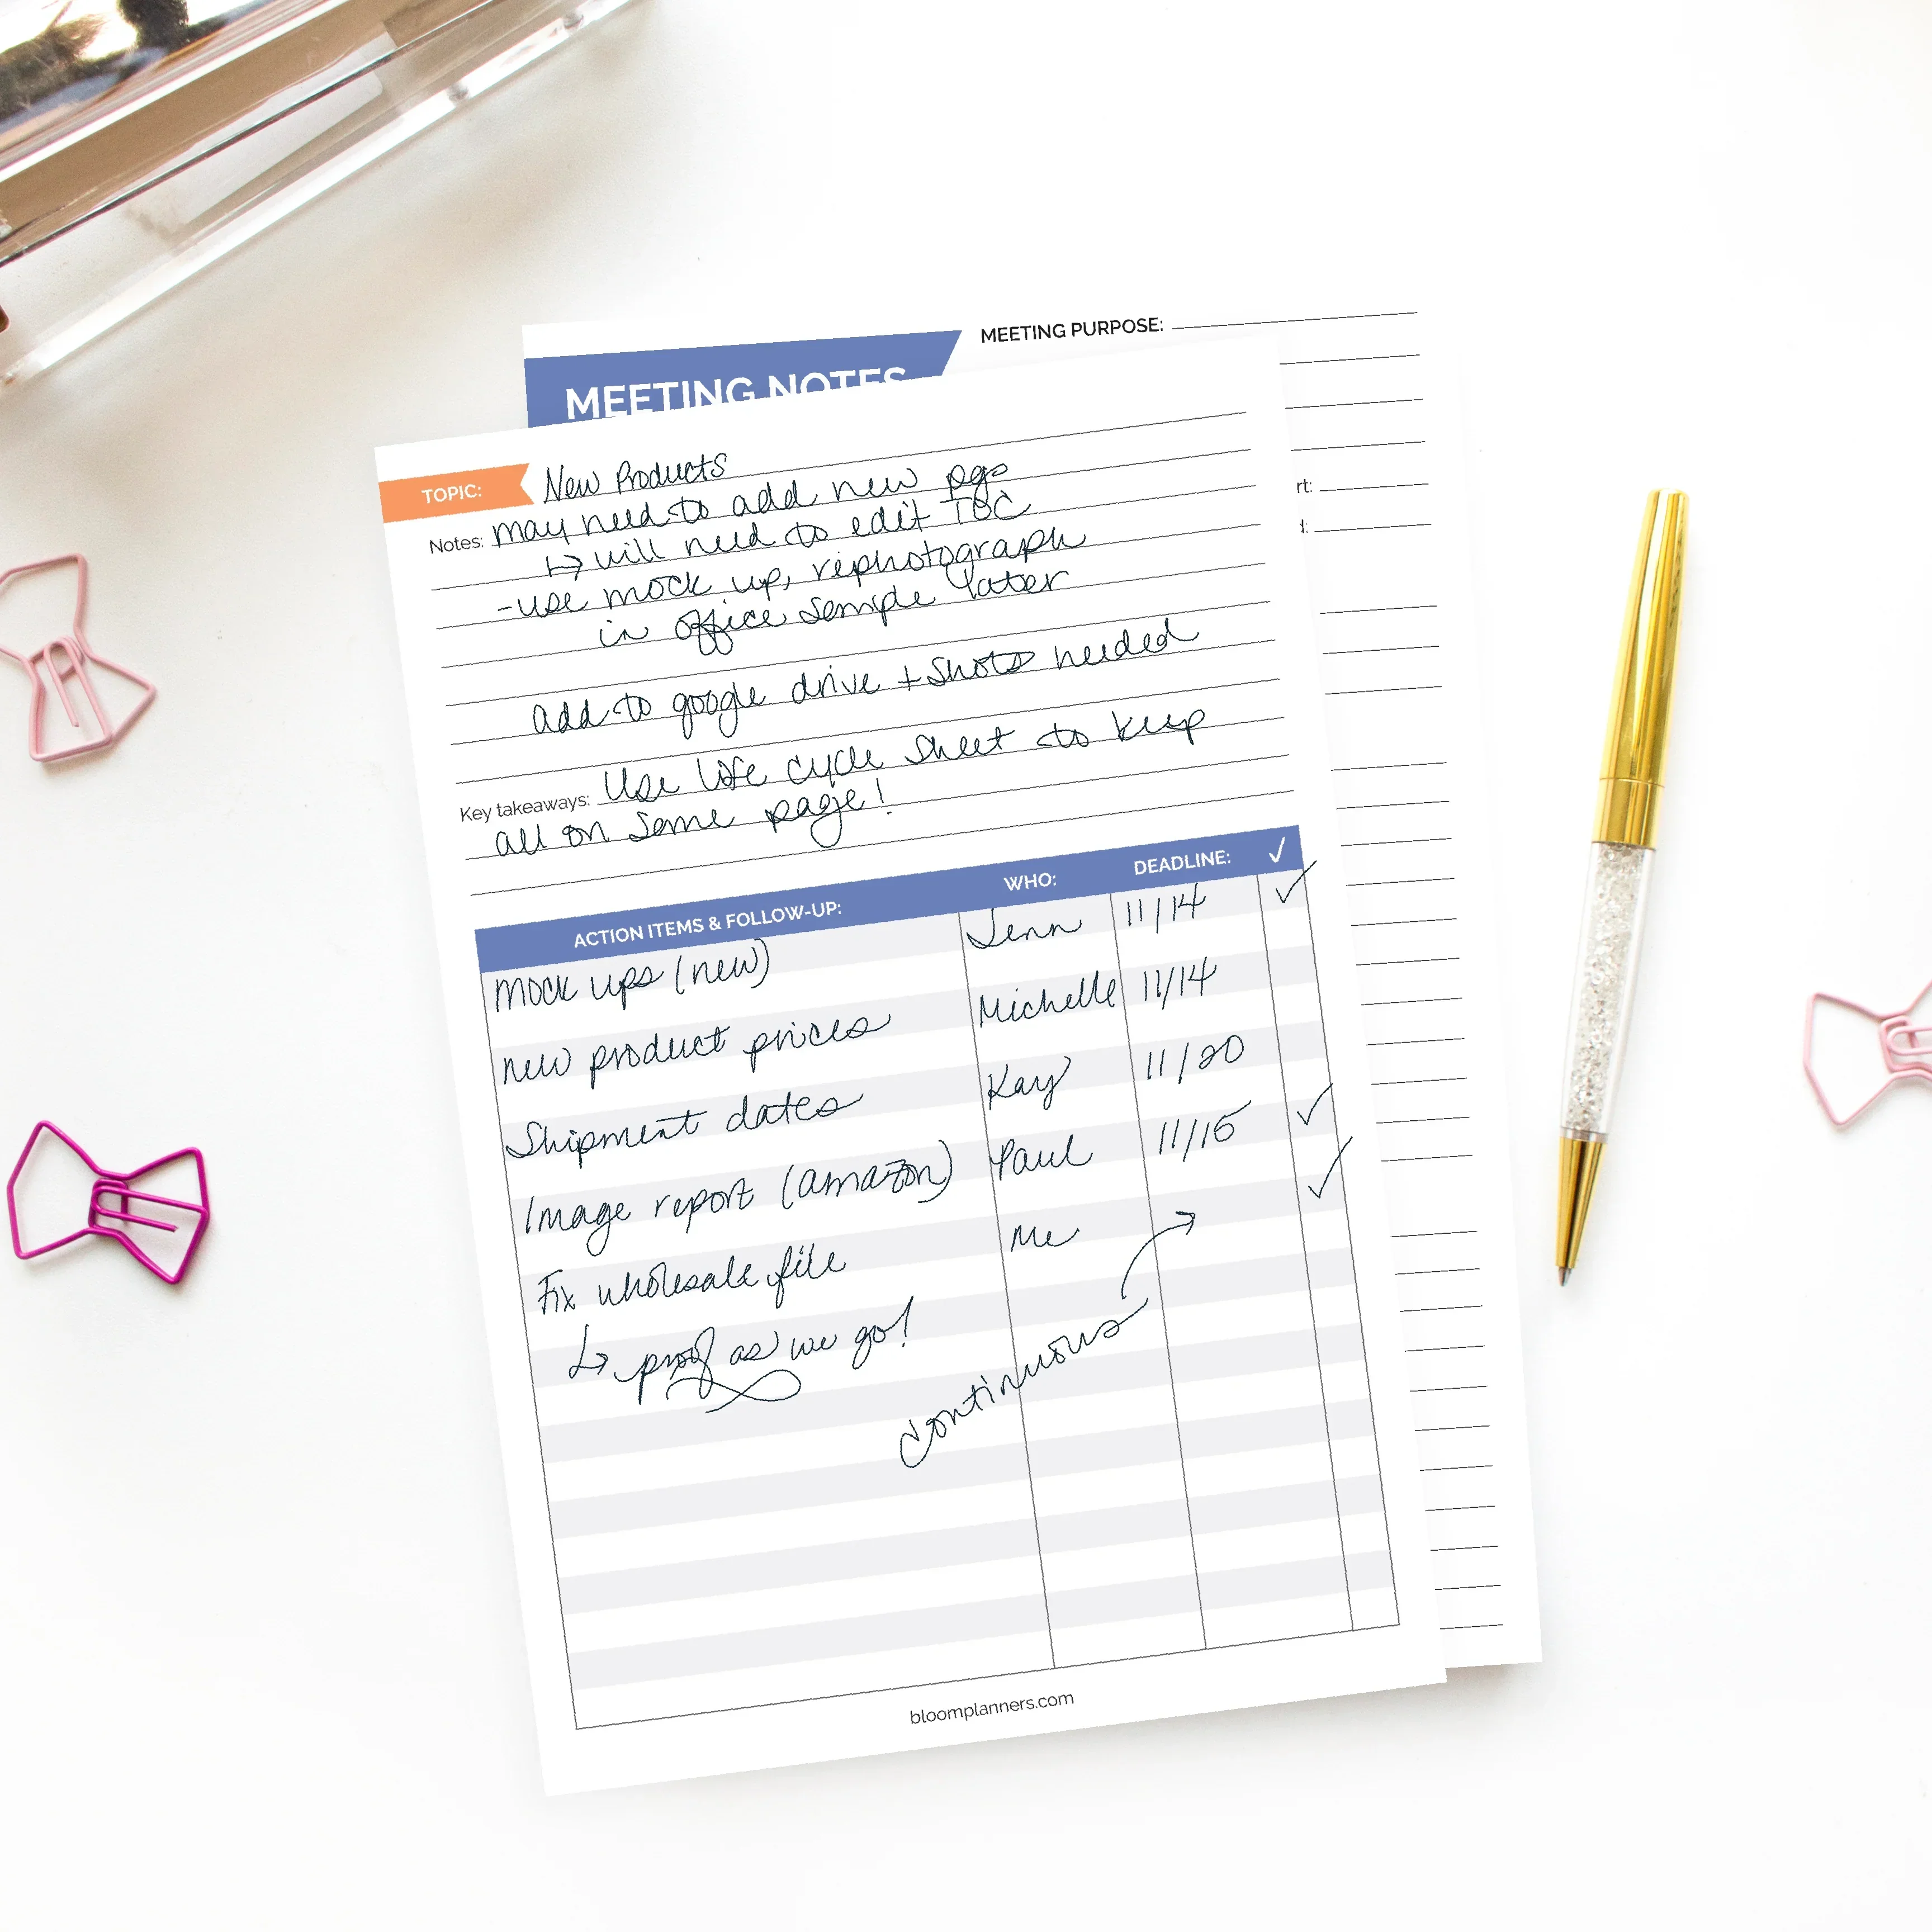 MEETING PURPOSE:
MEETING NOTES
rt:
TOPIC: New Products
Notes: may need to add new pgs
↳ will need to edit TOC
- use mock up, rephotograph
in office sample later
add to google drive + shots needed
Key takeaways: Use life cycle sheet to keep
all on same page!
ACTION ITEMS & FOLLOW-UP: WHO: DEADLINE: ✓
mock ups (new) Jenn 11/14 ✓
new product prices Michelle 11/14
Shipment dates Kay 11/20
Image report (amazon) Paul 11/15 ✓
Fix wholesale file Me ✓
↳ proof as we go!
continuous
bloomplanners.com